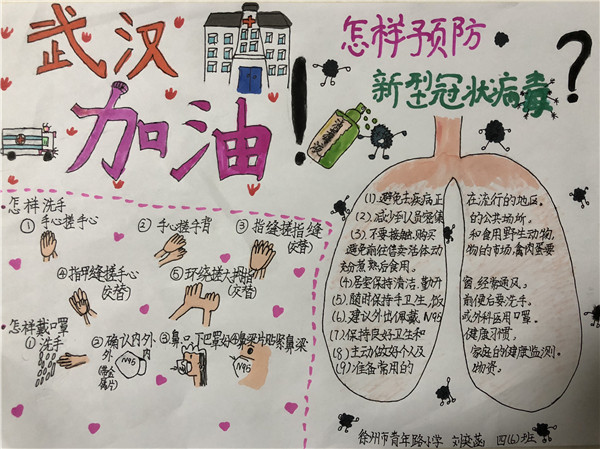 武汉
加油！
怎样预防
新型冠状病毒？
怎样洗手
① 手心搓手心
② 手心搓手背
③ 指缝搓指缝
(交替)
④ 指甲缝搓手心
(交替)
⑤ 环绕搓大拇指
(交替)
怎样戴口罩
① 洗手
② 确认内外
外 内
N95
③ 鼻、口、下巴罩好
④ 鼻梁片贴紧鼻梁
N95
(1). 避免去疾病正在流行的地区。
(2). 减少到人员密集的公共场所。
(3). 不要接触、购买和食用野生动物,
避免前往售卖活体动物的市场,禽肉蛋要
充分煮熟后食用。
(4). 居室保持清洁,勤开窗,经常通风。
(5). 随时保持手卫生,饭前便后要洗手。
(6). 建议外出佩戴N95或外科医用口罩。
(7). 保持良好卫生和健康习惯。
(8). 主动做好个人及家庭的健康监测。
(9). 准备常用的物资。
徐州市青年路小学 刘奕菡 四(6)班